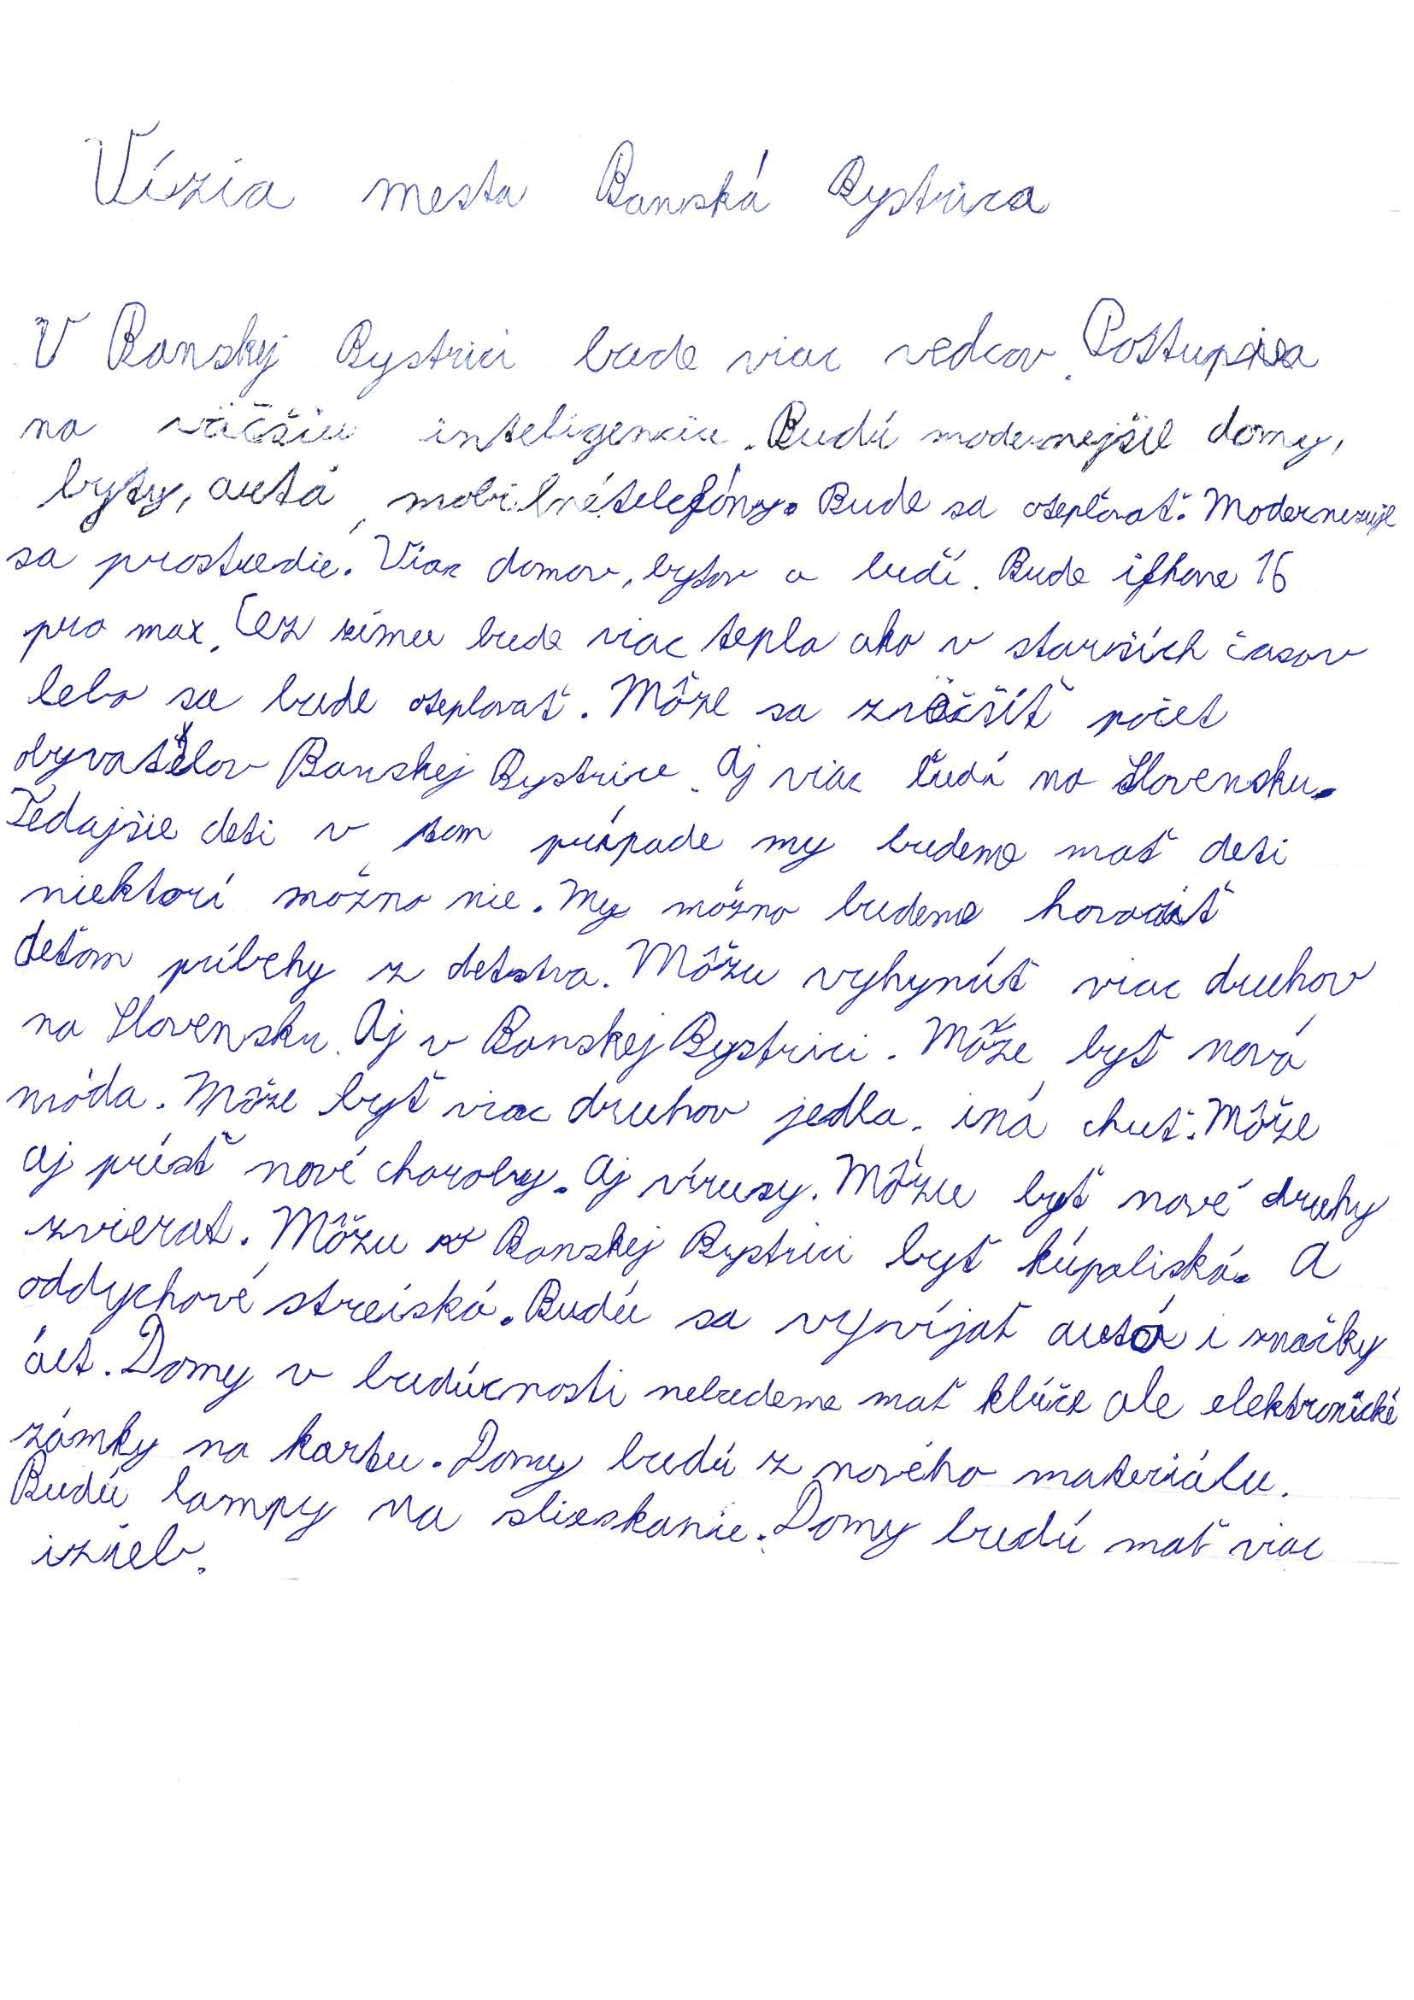 Vízia mesta Banská Bystrica
V Banskej Bystrici bude viac vedcov. Postupia
na väčšiu inteligenciu. Budú modernejšie domy,
byty, autá, mobilné telefóny. Bude sa otepľovať. Modernezuje
sa prostredie. Viac domov, bytov a ludí. Bude ifhone 16
pro max. Cez zimu bude viac tepla ako v starších časov
lebo sa bude oteplovať. Môže sa zväčšiť počet
obyvatelov Banskej Bystrice. Aj viac ľudí na Slovensku.
Tedajšie deti v tom prípade my budeme mať deti
niektorí možno nie. My možno budeme hovoriť
deťom príbehy z detstva. Môžu vyhynúť viac druhov
na Slovensku. Aj v Banskej Bystrici. Môže byť nová
móda. Môže byť viac druhov jedla. iná chuť. Môže
aj prísť nové choroby. Aj vírusy. Môžu byť nové druhy
zvierat. Môžu v Banskej Bystrici byť kúpaliská. A
oddychové streiská. Budú sa vyvíjať autá i značky
áut. Domy v budúcnosti nebudeme mať klúče ale elektronické
zámky na kartu. Domy budú z nového materiálu.
Budú lampy na slieskanie. Domy budú mať viac
izieb.